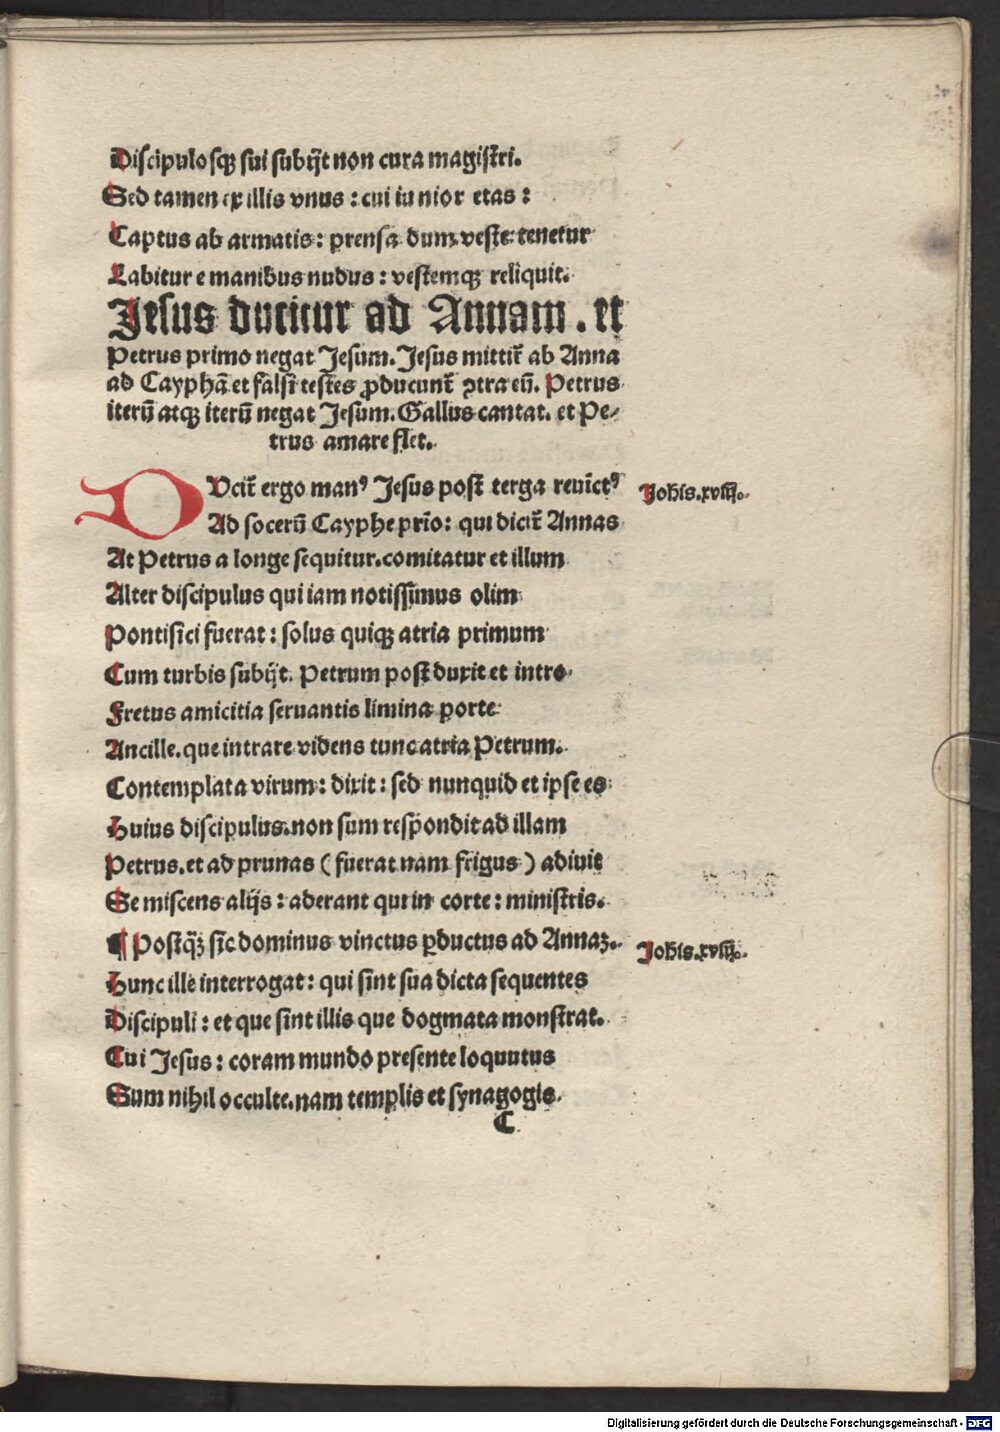 Discipulosqꝫ sui subijt non cura magistri.
Sed tamen ex illis vnus : cui iunior etas :
Captus ab armatis : prensa dum veste tenetur
Labitur e manibus nudus : vestemqꝫ reliquit.
Jesus ducitur ad Annam . et
Petrus primo negat Jesum. Jesus mittit̃ ab Anna
ad Cayphã et falsi testes ꝓducunt̃ ꝯtra eũ. Petrus
iterũ atqꝫ iterũ negat Jesum. Gallus cantat. et Pe⸗
trus amare flet.
DVcit̃ ergo manꝰ Jesus post terga reuĩctꝰ
Johis.xviij.
Ad socerũ Cayphe prĩo: qui dicit̃ Annas
At Petrus a longe sequitur.comitatur et illum
Alter discipulus qui iam notissimus olim
Pontifici fuerat : solus quiqꝫ atria primum
Cum turbis subijt. Petrum post duxit et intro
Fretus amicitia seruantis limina porte
Ancille. que intrare videns tunc atria Petrum.
Contemplata virum : dixit : sed nunquid et ipse es
Huius discipulus.non sum respondit ad illam
Petrus. et ad prunas ( fuerat nam frigus ) adiuit
Se miscens alijs : aderant qui in corte : ministris.
¶ Postqꝫ̃ sic dominus vinctus ꝑductus ad Annaꝫ.
Johis.xviij.
Hunc ille interrogat : qui sint sua dicta sequentes
Discipuli : et que sint illis que dogmata monstrat.
Cui Jesus : coram mundo presente loquutus
Sum nihil occulte.nam templis et synagogis.
C
Digitalisierung gefördert durch die Deutsche Forschungsgemeinschaft - DFG